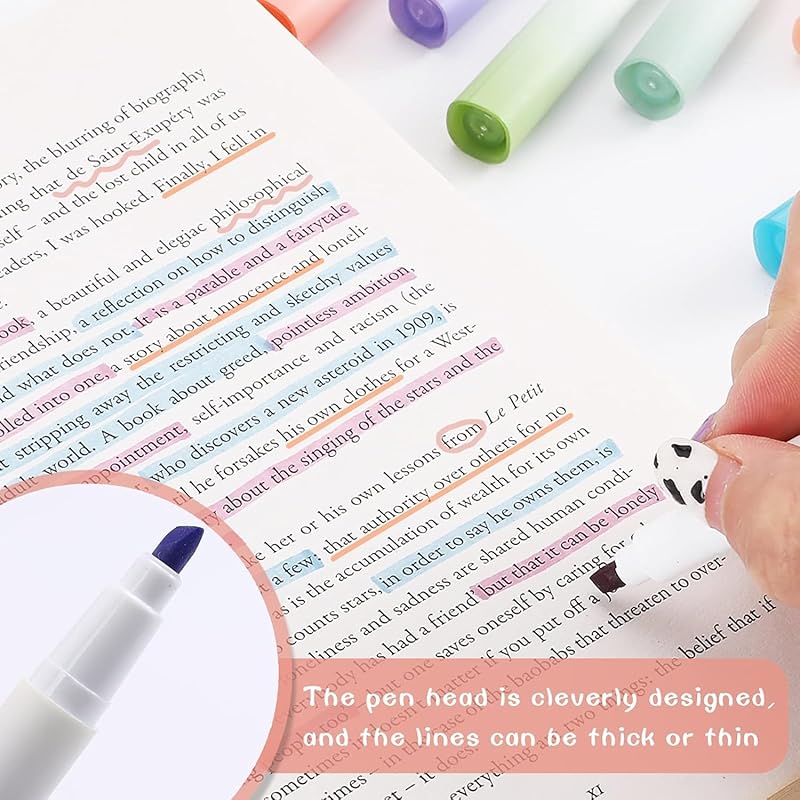 ory, the blurring of biography
ing that de Saint-Exupéry was
self – and the lost child in all of us
eaders, I was hooked. Finally, I fell in
e.
a beautiful and elegiac philosophical
ook, a reflection on how to distinguish
friendship, It is a parable and a fairytale
nd what does not. a story about innocence and loneli-
olled into one, the restricting and sketchy values
t stripping away A book about greed, pointless ambition,
adult world. self-importance and racism (the
appointment, who discovers a new asteroid in 1909, is
til he forsakes his own clothes for a West-
ry about the singing of the stars and the
ke her or his own lessons from Le Petit
a few: that authority over others for no
as is the accumulation of wealth for its own
o counts stars, in order to say he owns them, is
oneliness and sadness are shared human condi-
body has had a friend' but that it can be 'lonely
but one saves oneself by caring for
matter if you put off a
baobabs that threaten to over-
everything and two things: the belief that if
xi
The pen head is cleverly designed,
and the lines can be thick or thin